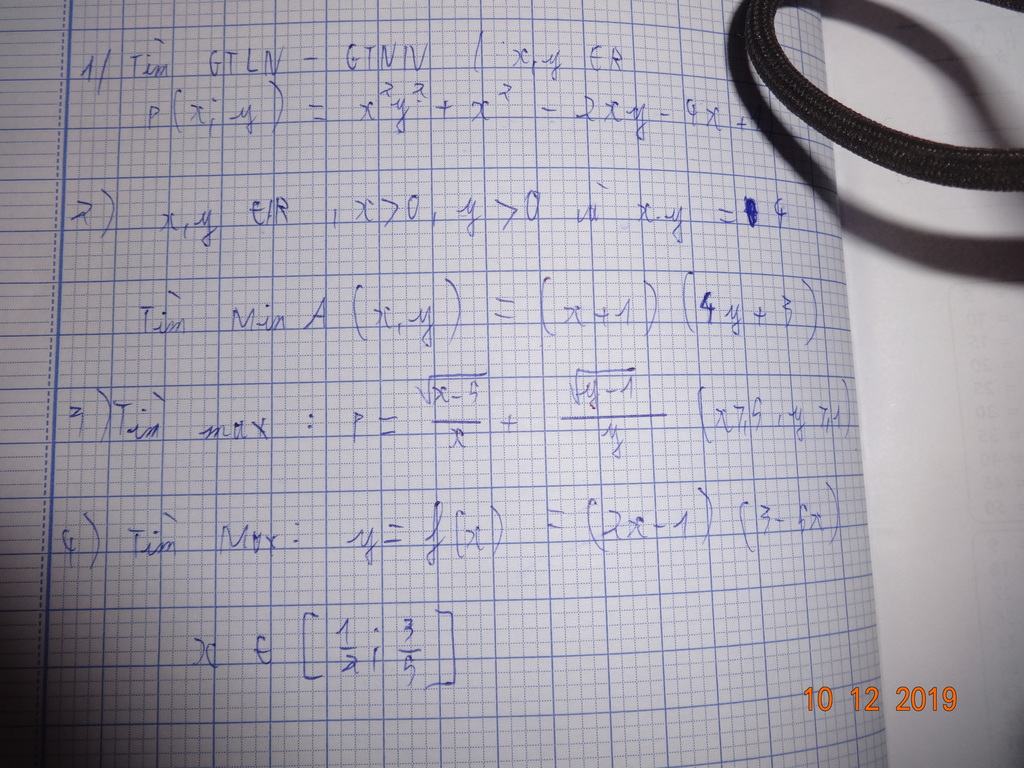 1/ Tìm GTLN - GTNN / x,y ∈ R
P(x; y) = x²y² + x² - 2xy - 4x +
2) x,y ∈ R , x > 0, y > 0 và x.y = 4
Tìm Min A (x, y) = (x+1) (4y + 3)
3) Tìm max : P = √(x-5)/x + √(y-1)/y (x ≥ 5, y ≥ 1)
4) Tìm Max: y = f(x) = (2x-1) (3-5x)
x ∈ [1/2 ; 3/5]
10 12 2019